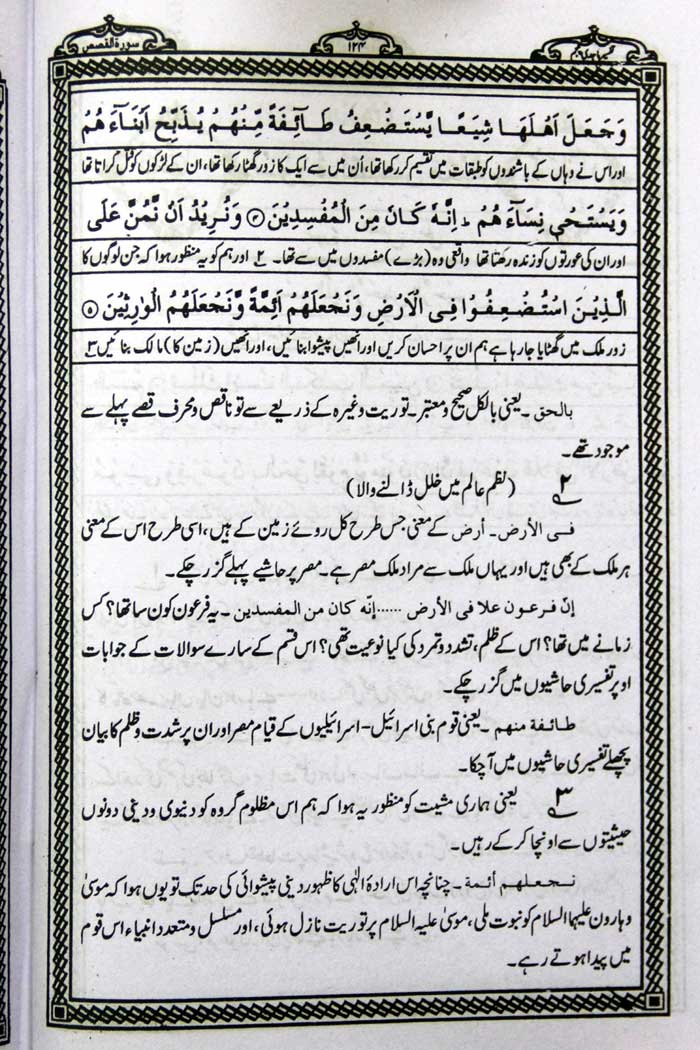 سورۃ القصص
۱۲۴
وَجَعَلَ اَهْلَهَا شِيَعًا يَّسْتَضْعِفُ طَآئِفَةً مِّنْهُمْ يُذَبِّحُ اَبْنَآءَ هُمْ
اور اس نے وہاں کے باشندوں کو طبقات میں تقسیم کر رکھا تھا، اُن میں سے ایک کا زور گھٹا رکھا تھا، ان کے لڑکوں کو قتل کراتا تھا
وَيَسْتَحْيٖ نِسَآءَ هُمْ ۔ اِنَّهٗ كَانَ مِنَ الْمُفْسِدِيْنَ ۴ وَنُرِيْدُ اَنْ نَّمُنَّ عَلَى
اور ان کی عورتوں کو زندہ رکھتا تھا واقعی وہ (بڑے) مفسدوں میں سے تھا۔ ۲ اور ہم کو یہ منظور ہوا کہ جن لوگوں کا
الَّذِيْنَ اسْتُضْعِفُوْا فِى الْاَرْضِ وَنَجْعَلَهُمْ اَئِمَّةً وَّنَجْعَلَهُمُ الْوٰرِثِيْنَ ۵
زور ملک میں گھٹایا جا رہا ہے ہم ان پر احسان کریں اور انھیں پیشوا بنائیں، اور انھیں (زمین کا) مالک بنائیں ۳
بالحق ۔ یعنی بالکل صحیح و معتبر۔ توریت وغیرہ کے ذریعے سے تو ناقص و محرف قصے پہلے سے
موجود تھے۔
۲ (نظم عالم میں خلل ڈالنے والا)
فی الأرض۔ أرض کے معنی جس طرح کل روئے زمین کے ہیں، اسی طرح اس کے معنی
ہر ملک کے بھی ہیں اور یہاں ملک سے مراد ملک مصر ہے۔ مصر پر حاشیے پہلے گزر چکے۔
إنّ فرعون علا فی الأرض ......إنّه كان من المفسدین۔ یہ فرعون کون سا تھا؟ کس
زمانے میں تھا؟ اس کے ظلم، تشدد و تمرد کی کیا نوعیت تھی؟ اس قسم کے سارے سوالات کے جوابات
اوپر تفسیری حاشیوں میں گزر چکے۔
طائفة منهم ۔ یعنی قوم بنی اسرائیل۔ اسرائیلیوں کے قیام مصر اور ان پر شدت و ظلم کا بیان
پچھلے تفسیری حاشیوں میں آ چکا۔
۳ یعنی ہماری مشیت کو منظور یہ ہوا کہ ہم اس مظلوم گروہ کو دنیوی و دینی دونوں
حیثیتوں سے اونچا کر کے رہیں۔
نجعلهم أئمة ۔ چنانچہ اس ارادۂ الٰہی کا ظہور دینی پیشوائی کی حد تک تو یوں ہوا کہ موسیٰ
و ہارون علیہما السلام کو نبوت ملی، موسیٰ علیہ السلام پر توریت نازل ہوئی، اور مسلسل و متعدد انبیاء اس قوم
میں پیدا ہوتے رہے۔